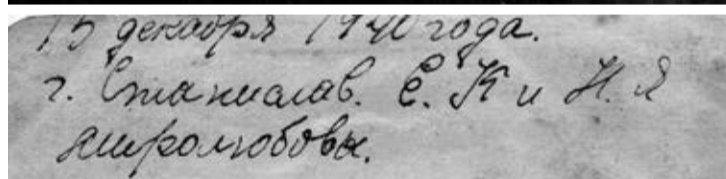 15 декабря 1940 года.
г. Станислав. Е. К и Н. Я
Миролюбовы.